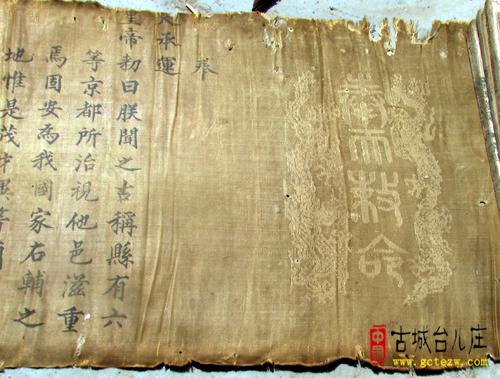 奉天敕命
奉
天承運
皇帝勅曰朕聞之古稱縣有六
等京都所治視他邑滋重
焉固安為我國家右輔之
地惟是茂才異等
中国
古城台儿庄
www.gctezw.com